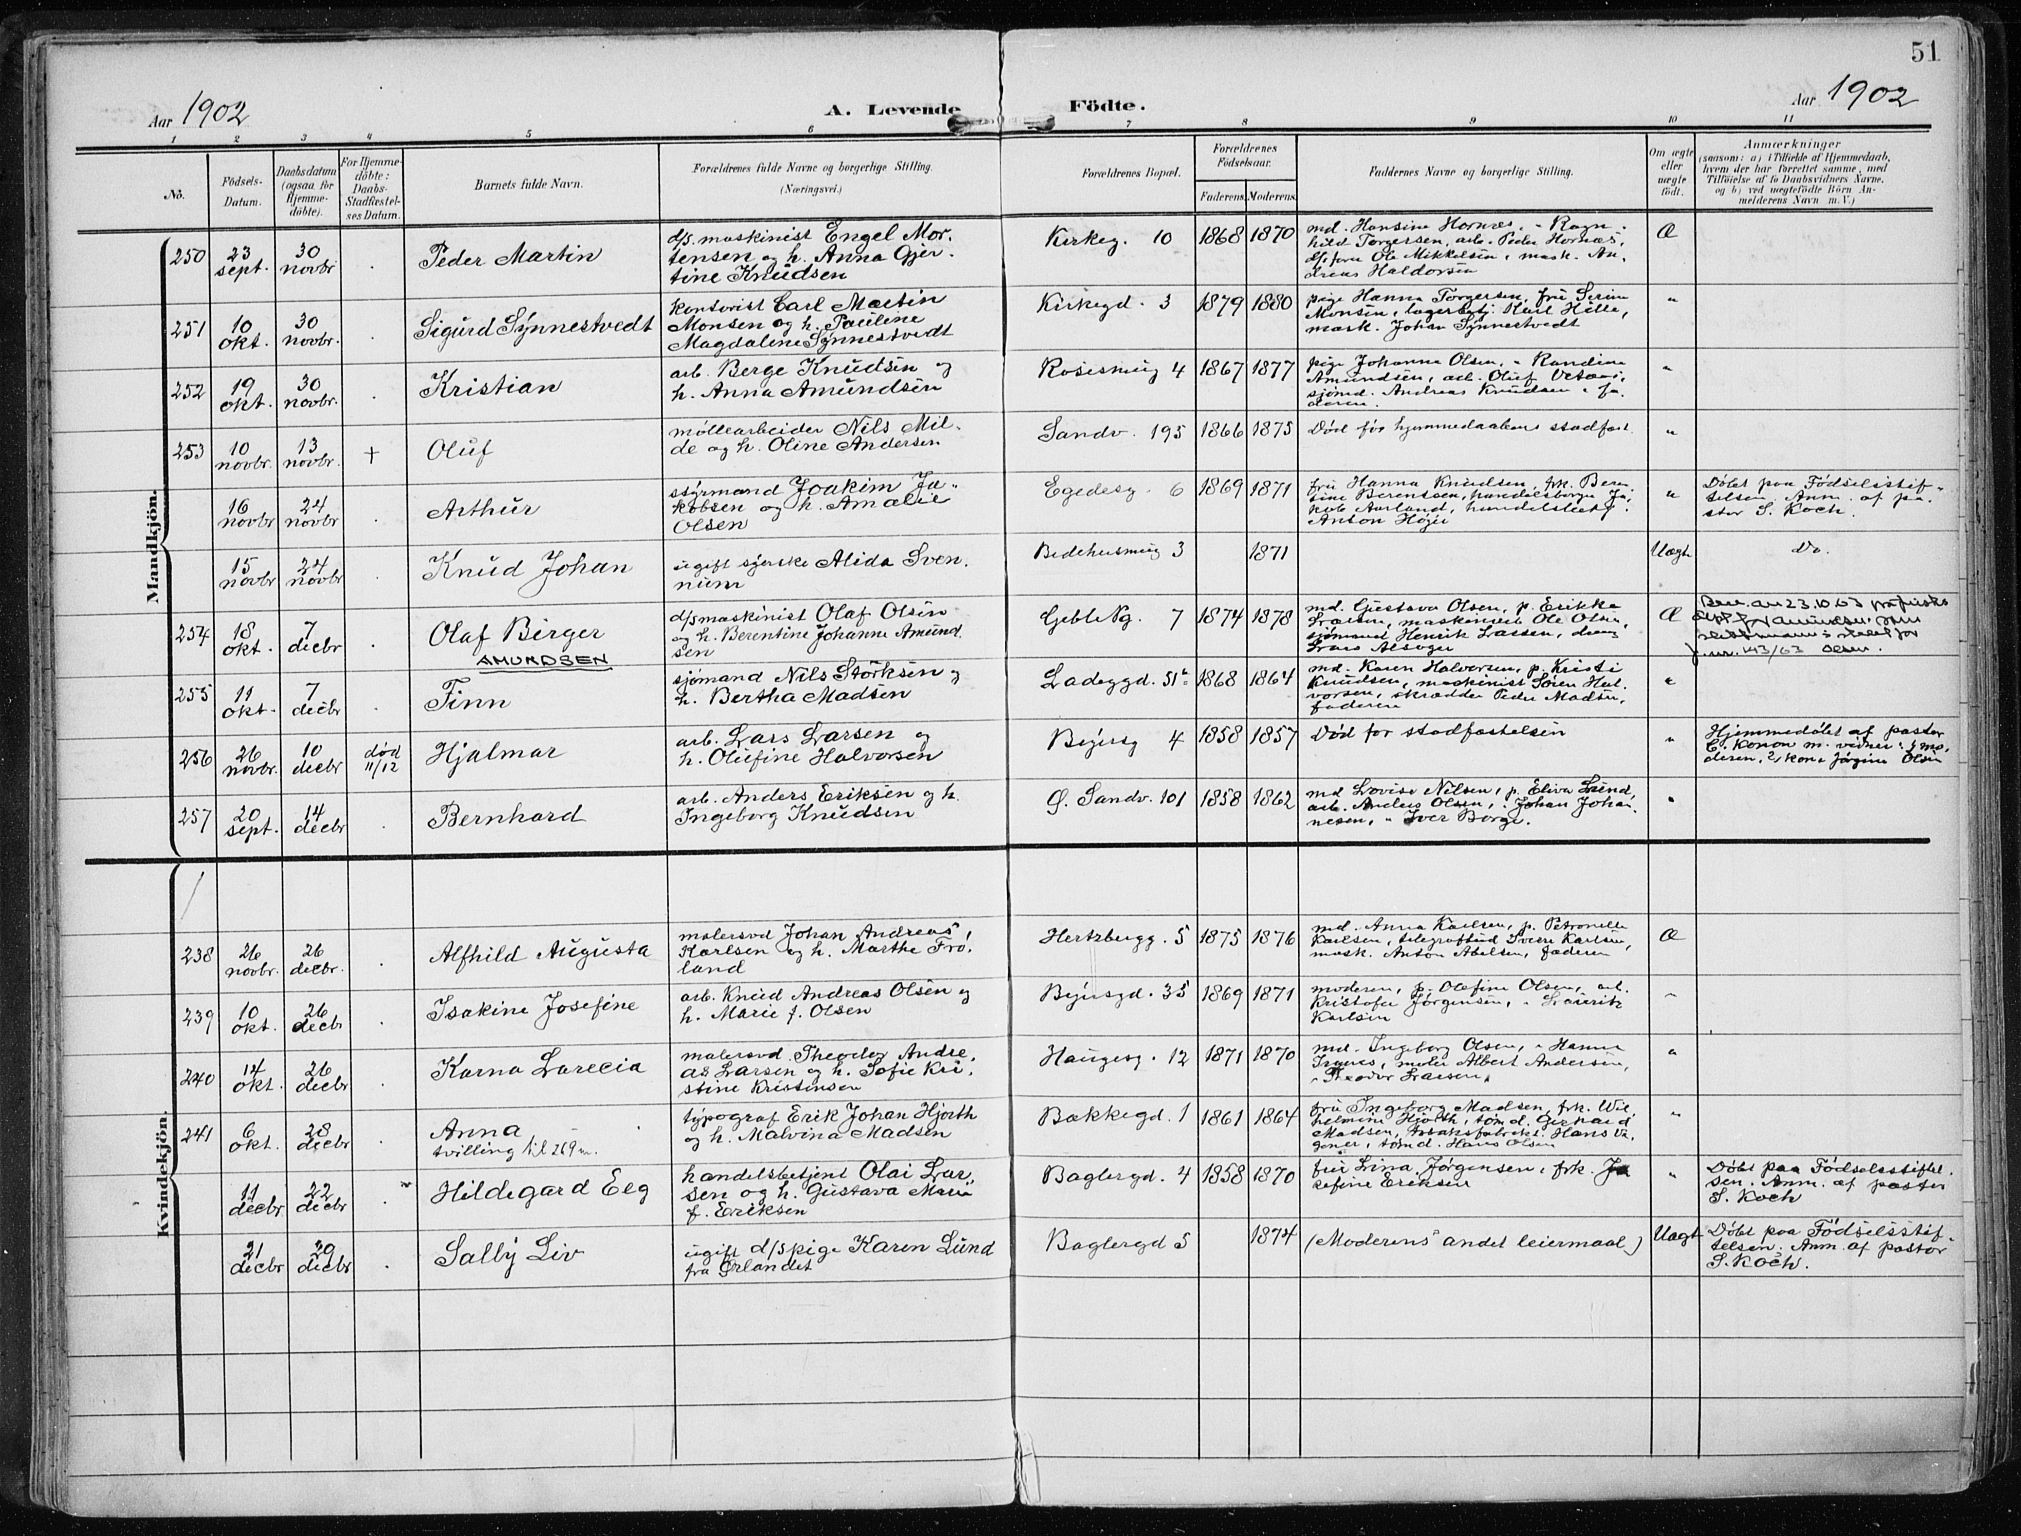 51
Aar 1902
A. Levende Födte.
Aar 1902
1 2 3 4 5 6 7 8 9 10 11
No.
Födsels-
Datum.
Daabsdatum
(ogsaa for
Hjemme-
döbte).
For Hjemme-
döbte:
Daabs-
Stadfæstel-
ses Datum.
Barnets fulde Navn.
Forældrenes fulde Navne og borgerlige Stilling.
(Næringsvei.)
Forældrenes Bopæl.
Forældrenes
Födselsaar.
Faderens. Moderens.
Faddernes Navne og borgerlige Stilling.
Om ægte
eller
uægte
födt.
Anmærkninger
(saasom: a) i Tilfælde af Hjemmedaab,
hvem der har forrettet samme, med
Tilföielse af to Daabsvidners Navne,
og b) ved uægtefödte Börn An-
melderens Navn m. V.)
Mandkjön.
250 23 sept. 30 novbr . Peder Martin
d/s. maskinist Engel Mor-
tensen og h. Anna Gjer-
tine Knudsen
Kirkeg. 10 1868 1870
md. Hansine Hornæs, " Ragn-
hild Torgersen, arb. Peder Hornæs,
d/s fører Ole Mikkelsen, mask. An-
dreas Haldorsen
Æ
251 10 okt. 30 novbr. Sigurd Synnestvedt
kontorist Carl Martin
Monsen og h. Pauline
Magdalene Synnestvedt
Kirkegd. 3 1879 1880
pige Hanna Torgersen, fru Serine
Monsen, lagerbetj. Karl Hille,
mask. Johan Synnestvedt
"
252 19 okt. 30 novbr. . Kristian
arb. Berge Knudsen og
h. Anna Amundsen
Rosesmug 4 1867 1877
pige Johanne Olsen, " Randine
Amundsen, arb. Oluf
sjømd. Andreas Knudsen, fa-
deren.
"
253 10 novbr. 13 novbr. + Oluf
møllearbeider Nils Mil-
de og h. Oline Andersen
Sandv. 195 1866 1875
Død før hjemmedaabens stadfæst.
"
16 novbr 24 novbr . Arthur
styrmand Joakim Ja-
kobsen og h. Amalie
Olsen
Egedesg. 6 1869 1871
fru Hanna Knudsen, frk. Beren-
tine Berentsen, handelsborger Ja-
kob Aarland, handelsbetj.
Anton Højer
"
Døbt paa Fødselsstif-
telsen. Anm. af pa-
stor S. Koch.
15 novbr 24 novbr . Knud Johan
ugift syerske Alida Sven-
num
Bedehusmug 3 1871
Uægt
Do.
254 18 okt. 7 decbr Olaf Birger
AMUNDSEN
d/s maskinist Olaf Olsen
og h. Berentine Johanne Amund-
sen
Geble Ng. 7 1874 1878
md. Gustava Olsen, p. Erikka
Larsen, maskinist Ole Olsen,
sjømand Henrik Larsen,
Lars Alsager
Æ
Bev. av 23.10.63
Amundsen som
slektsnavn i stedet for
j.nr. 143/63 Olsen.
255 11 okt. 7 decbr . Finn
sjømand Nils Størksen og
h. Bertha Madsen
Ladeggd. 51b 1868 1864
md. Karen Halvorsen, p. Kristi
Knudsen, maskinist Søren Hal-
vorsen, skrædder Peder Madsen,
faderen
"
256 26 novbr. 10 decbr død 11/12 Hjalmar
arb. Lars Larsen og
h. Olufine Halvorsen
Bøjersg 4 1858 1857
Død for stadfæstelsen
"
Hjemmedøbt af pastor
C. Konow m. vidner: 1) mo-
deren, 2) kone Jørgine Olsen
257 20 sept. 14 decbr . Bernhard
arb. Anders Eriksen og h.
Ingeborg Knudsen
Ø. Sandv. 101 1858 1862
md Lovise Nilsen, p. Eliva Lund,
arb. Anders Olsen, " Johan Johan-
nesen, " Iver Borge.
"
Kvindekjön.
238 26 novbr. 26 decbr. . Alfhild Augusta
malersvd Johan Andreas
Karlsen og h. Marthe Frø-
land
Hertzbergg. 5 1875 1876
md. Anna Karlsen, p. Petronelle
Karlsen, telegrafbud Sverre Karlsen,
mask. Anton Abelsen, faderen
Æ
239 10 okt. 26 decbr . Isakine Josefine
arb. Knud Andreas Olsen og
h. Marie f. Olsen
Bøjersgd. 35 1869 1871
moderen, p. Olefine Olsen, arb.
Kristofer Jørgensen, " Lauritz
Karlsen
"
240 14 okt. 26 decbr . Karna Lorecia
malersvd. Theodor Andre-
as Larsen og h. Sofie Kri-
stine Kristensen
Haugesg. 12 1871 1870
md. Ingeborg Olsen, " Hanna
maler Albert Andersen,
" Theodor Larsen.
"
241 6 okt. 28 decbr . Anna
tvilling til 269 m.
typograf Erik Johan Hjorth
og h. Malvina Madsen
Bakkegd. 1 1861 1864
fru Ingeborg Madsen, frk. Wil-
helmine Hjorth, tømd. Gerhard
Madsen, tobaksfabrikt. Hans Va-
gener, tømd. Hans Olsen
"
11 decbr 22 decbr " Hildegard Elg
handelsbetjent Olai Lar-
sen og h. Gustava Marie
f. Eriksen
Baglergd. 4 1858 1870
fru Lina Jørgensen, frk. Jo-
sefine Eriksen
"
Døbt paa Fødselsstiftel-
sen. Anm. af pastor
S. Koch
21 decbr 29 decbr . Salby Liv
ugift d/s pige Karen Lund
fra Ørlandet
Baglergd 5 1874
(Moderens andet leiermaal)
Uægt
Døbt paa Fødselsstif-
telsen. Anm. af pastor
S. Koch.